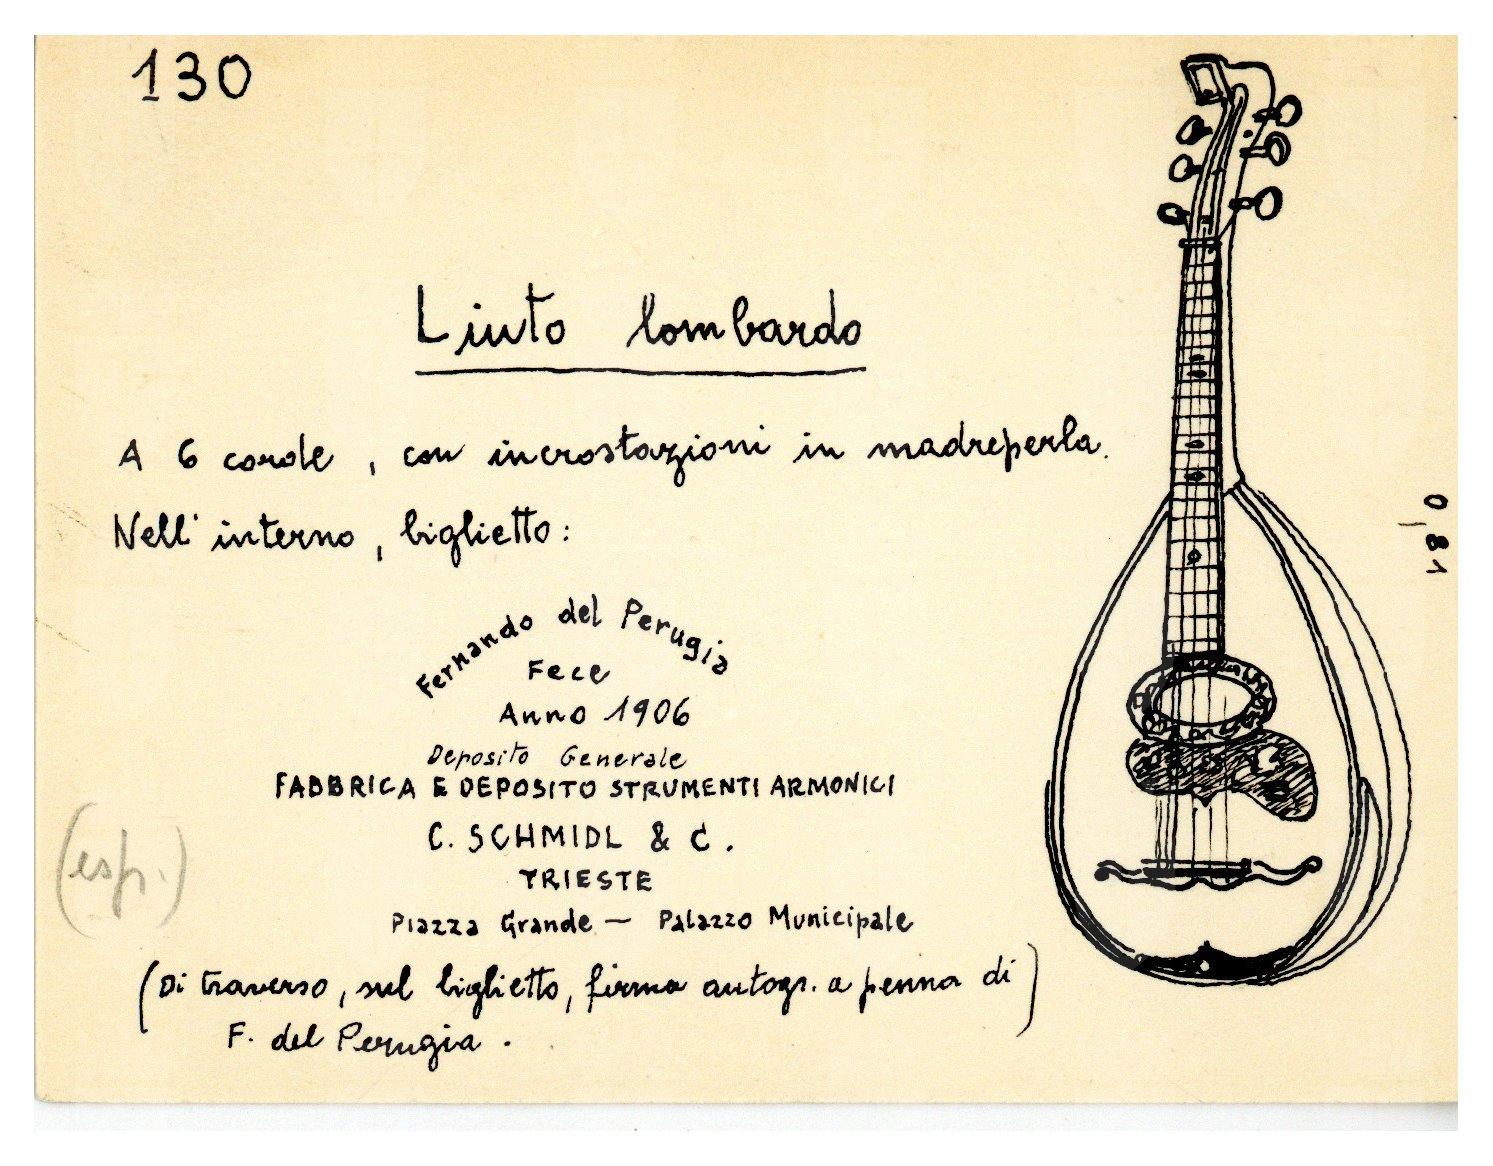 130
Liuto lombardo
A 6 corde, con incrostazioni in madreperla.
Nell'interno, biglietto:
Fernando del Perugia
Fece
Anno 1906
Deposito Generale
FABBRICA E DEPOSITO STRUMENTI ARMONICI
C. SCHMIDL & C.
TRIESTE
Piazza Grande — Palazzo Municipale
(Di traverso, sul biglietto, firma autogr. a penna di
F. del Perugia.)
(esp.)
0,81